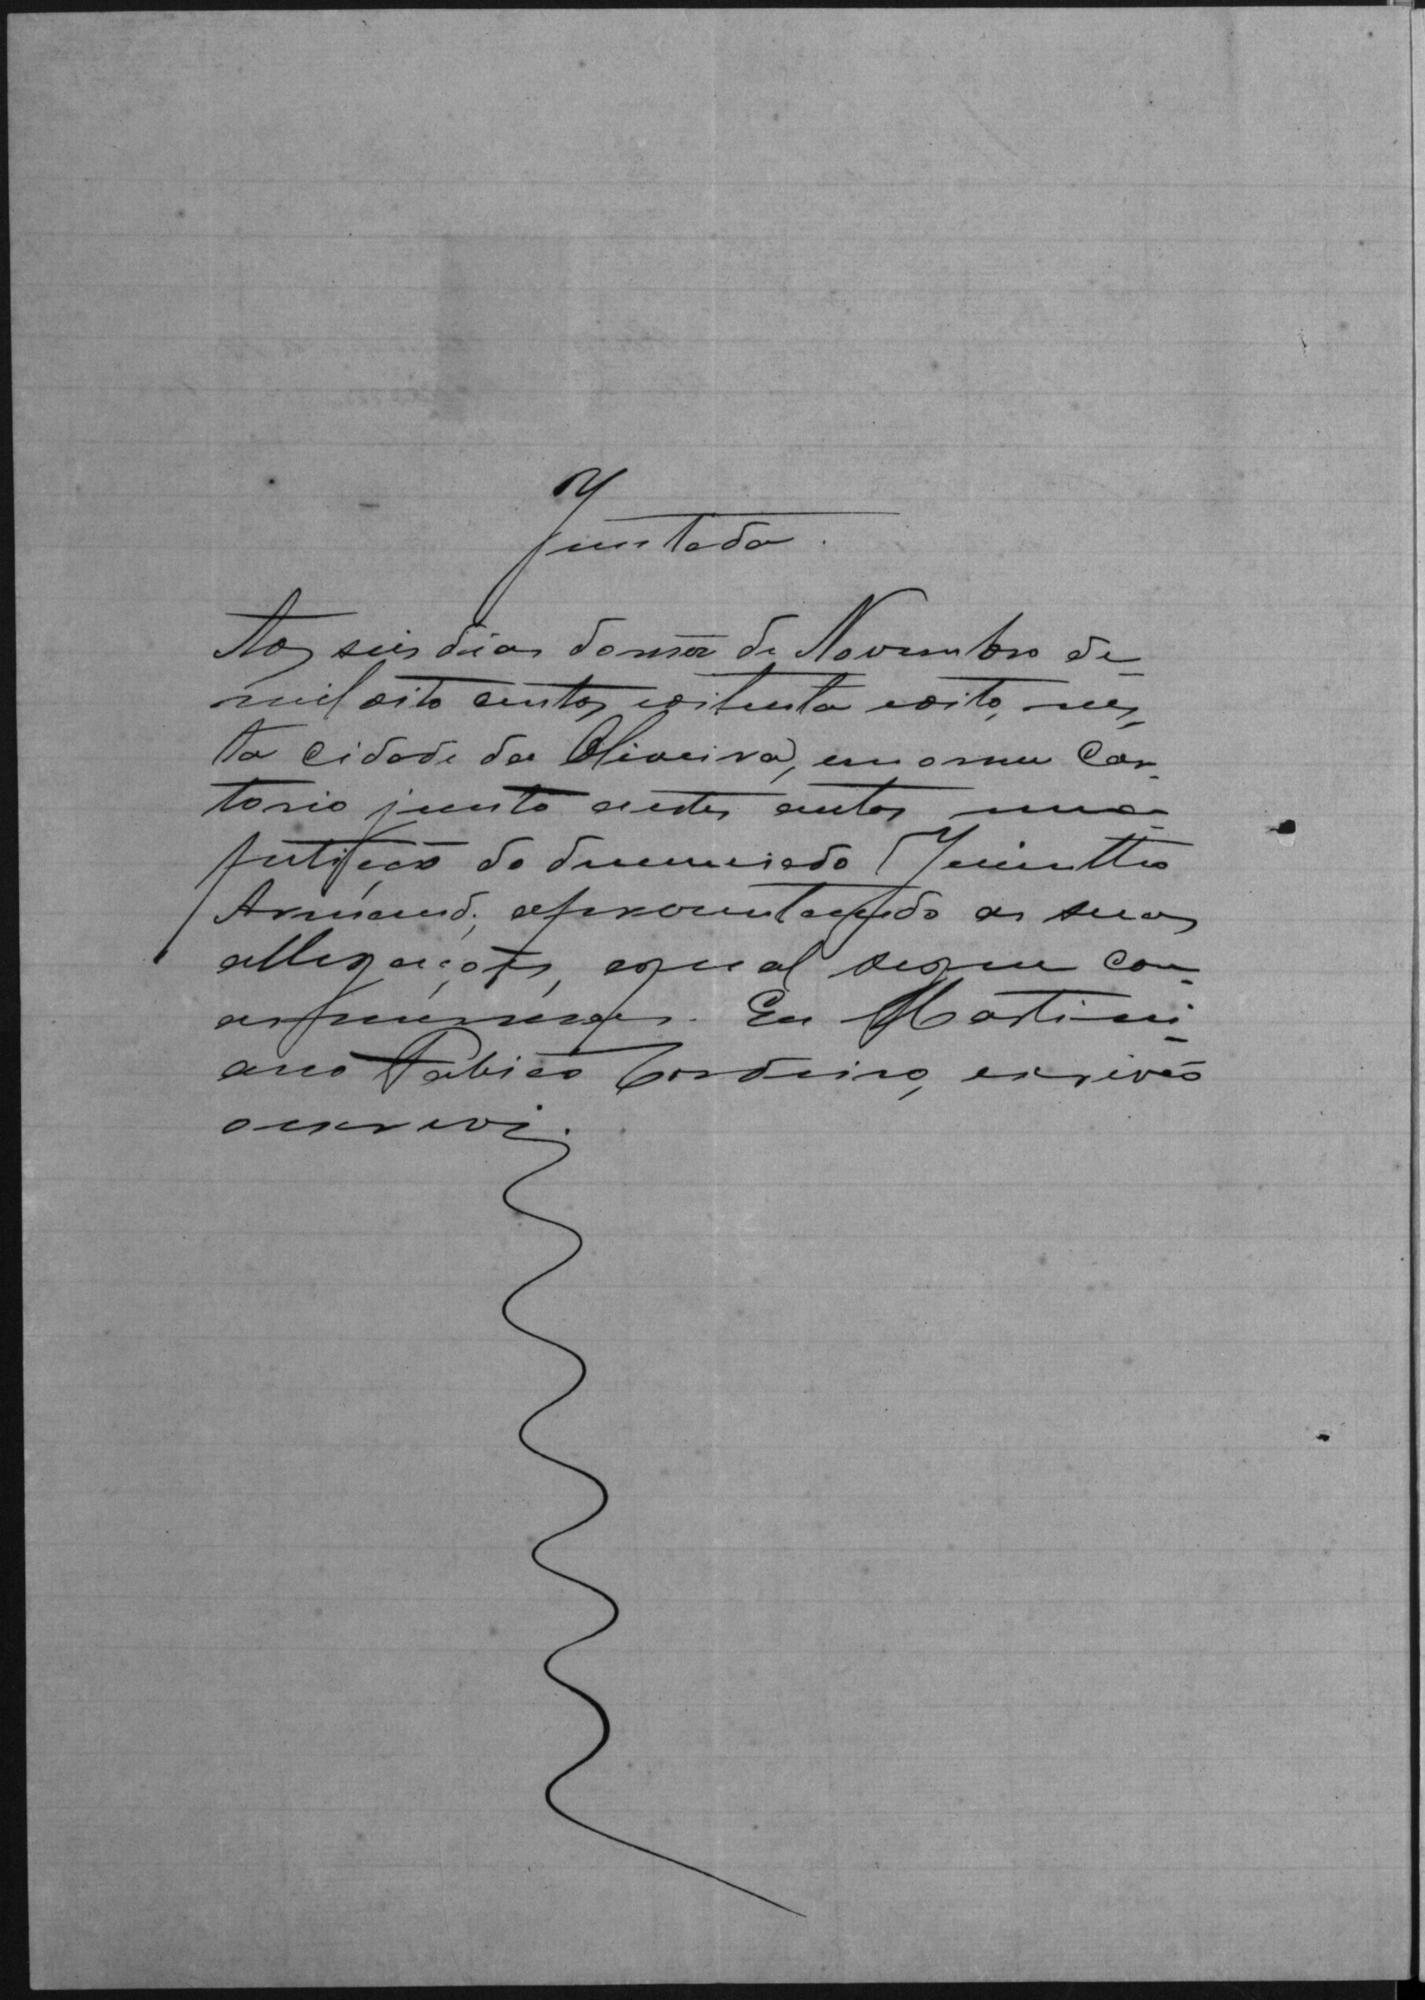 Juntada.
Aos seis dias do mez de Novembro de
mil oito centos e oitenta e oito, nes-
ta cidade da Oliveira, em o meu Car-
torio junto a estes autos uma
petição do denunciado
apresentando as suas
allegações, a qual segue com
Eu Martini-
ano Cordeiro, escrivão
o escrevi.